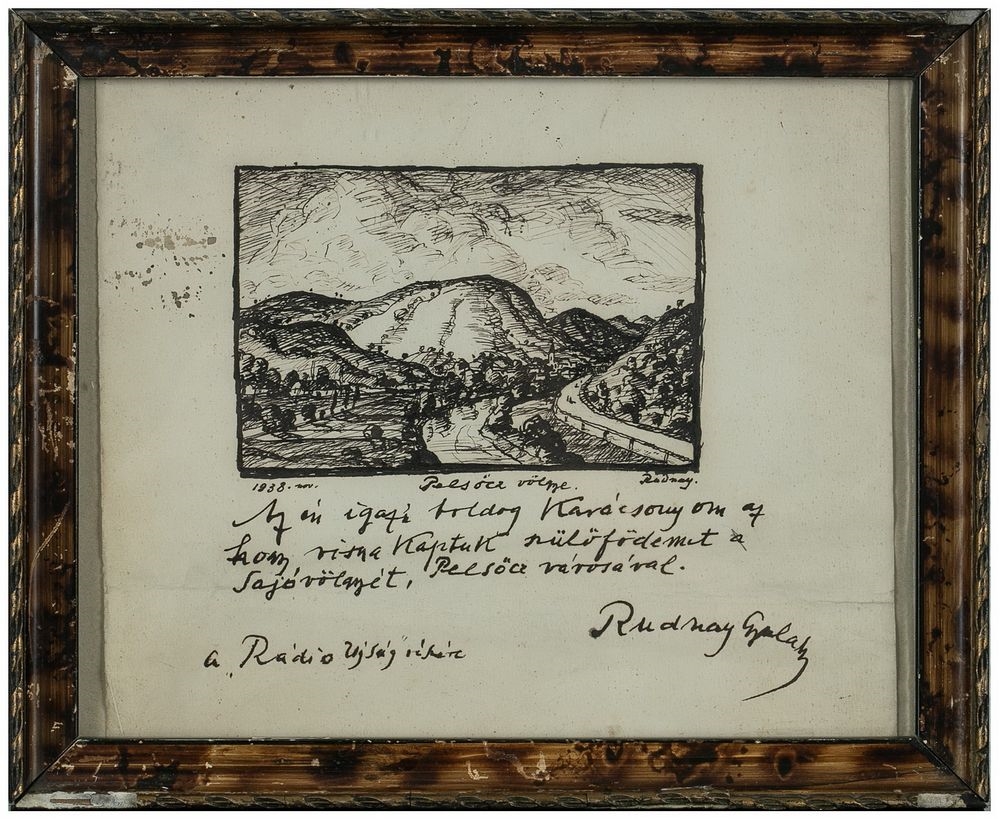 1938. nov. Pelsőcz völgye. Rudnay.
Az én igazi boldog Karácsonyom az
hogy vissza Kaptuk szülőfödemet a
Sajóvölgyét, Pelsőcz városával.
Rudnay Gyula
a Rádió Ujság részére